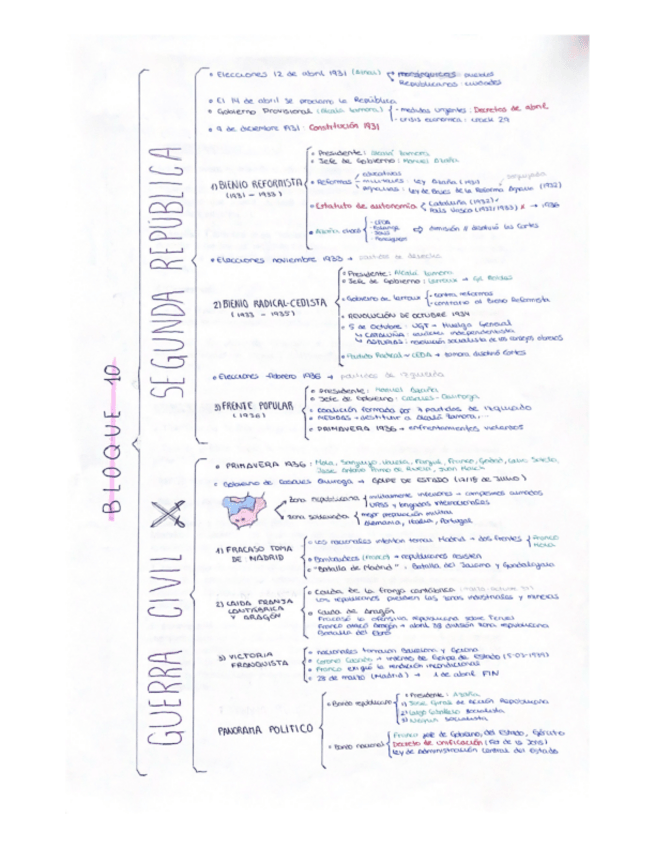 BLOQUE 10
SEGUNDA REPÚBLICA
• Elecciones 12 de abril 1931 monárquicos: pueblos
Republicanos: ciudades
• El 14 de abril se proclama la República
• Gobierno Provisional (Alcalá Zamora) - medidas urgentes: Decretos de abril
- crisis económica: crack 29
• 9 de diciembre 1931: Constitución 1931
1) BIENIO REFORMISTA
(1931 - 1933)
• Presidente: Alcalá Zamora
• Jefe de Gobierno: Manuel Azaña
• Reformas
educativas
militares: Ley Azaña (1931)
agrarias: Ley de Bases de la Reforma Agraria (1932)
• Estatuto de autonomía Cataluña (1932)
País Vasco (1932/1933) x → 1936
- CEDA
- Falange
⇨ dimisión y disolvió las Cortes
• Elecciones noviembre 1933 → partidos de derecha
2) BIENIO RADICAL-CEDISTA
(1933 - 1935)
• Presidente: Alcalá Zamora
• Jefe de Gobierno: Lerroux → Gil Robles
• Gobierno de Lerroux - contra reformas
- contrario al Bienio Reformista
• REVOLUCIÓN DE OCTUBRE 1934
• 5 de Octubre - UGT → Huelga General
↳ CATALUÑA: carácter independentista
↳ ASTURIAS: revolución socialista de los consejos obreros
• Partido Radical - CEDA → Zamora disolvió Cortes
• Elecciones febrero 1936 → partidos de izquierda
3) FRENTE POPULAR
(1936)
• Presidente: Manuel Azaña
• Jefe de Gobierno: Casares-Quiroga
• Coalición formada por partidos de izquierda
• MEDIDAS → destituir a Alcalá Zamora, ...
• PRIMAVERA 1936 → enfrentamientos violentos
GUERRA CIVIL
• PRIMAVERA 1936: Mola, Sanjurjo, Varela, Fanjul, Franco, Goded,
José Antonio Primo de Rivera, Juan March
• Gobierno de Casares Quiroga → GOLPE DE ESTADO (17/18 de JULIO)
Zona republicana militarmente inferiores → campesinos armados
URSS y brigadas internacionales
Zona sublevada mejor preparación militar
Alemania, Italia, Portugal
1) FRACASO TOMA
DE MADRID
• Los nacionales intentan tomar Madrid → dos frentes Franco
Mola
• Bombardeos (Franco) → republicanos resisten
• "Batalla de Madrid": Batalla del Jarama y Guadalajara
2) CAÍDA FRANJA
CANTÁBRICA
Y ARAGÓN
• Caída de la franja cantábrica
Los republicanos pierden las zonas industriales y mineras
• Caída de Aragón
Fracasó la ofensiva republicana sobre Teruel
Franco atacó Aragón → abril 38 división zona republicana
Batalla del Ebro
3) VICTORIA
FRANQUISTA
• nacionales tomaron Barcelona y Gerona
• Coronel Casado → intento de Golpe de Estado (5-03-1939)
• Franco exigió la rendición incondicional
• 28 de marzo (Madrid) → 1 de abril FIN
PANORAMA POLÍTICO
• Bando republicano
• Presidente: Azaña
1) José Giral de Acción Republicana
2) Largo Caballero socialista
3) Negrín socialista
• Bando nacional
Franco jefe de Gobierno, del Estado, Ejército
Decreto de unificación (FET de la JONS)
Ley de Administración Central del Estado